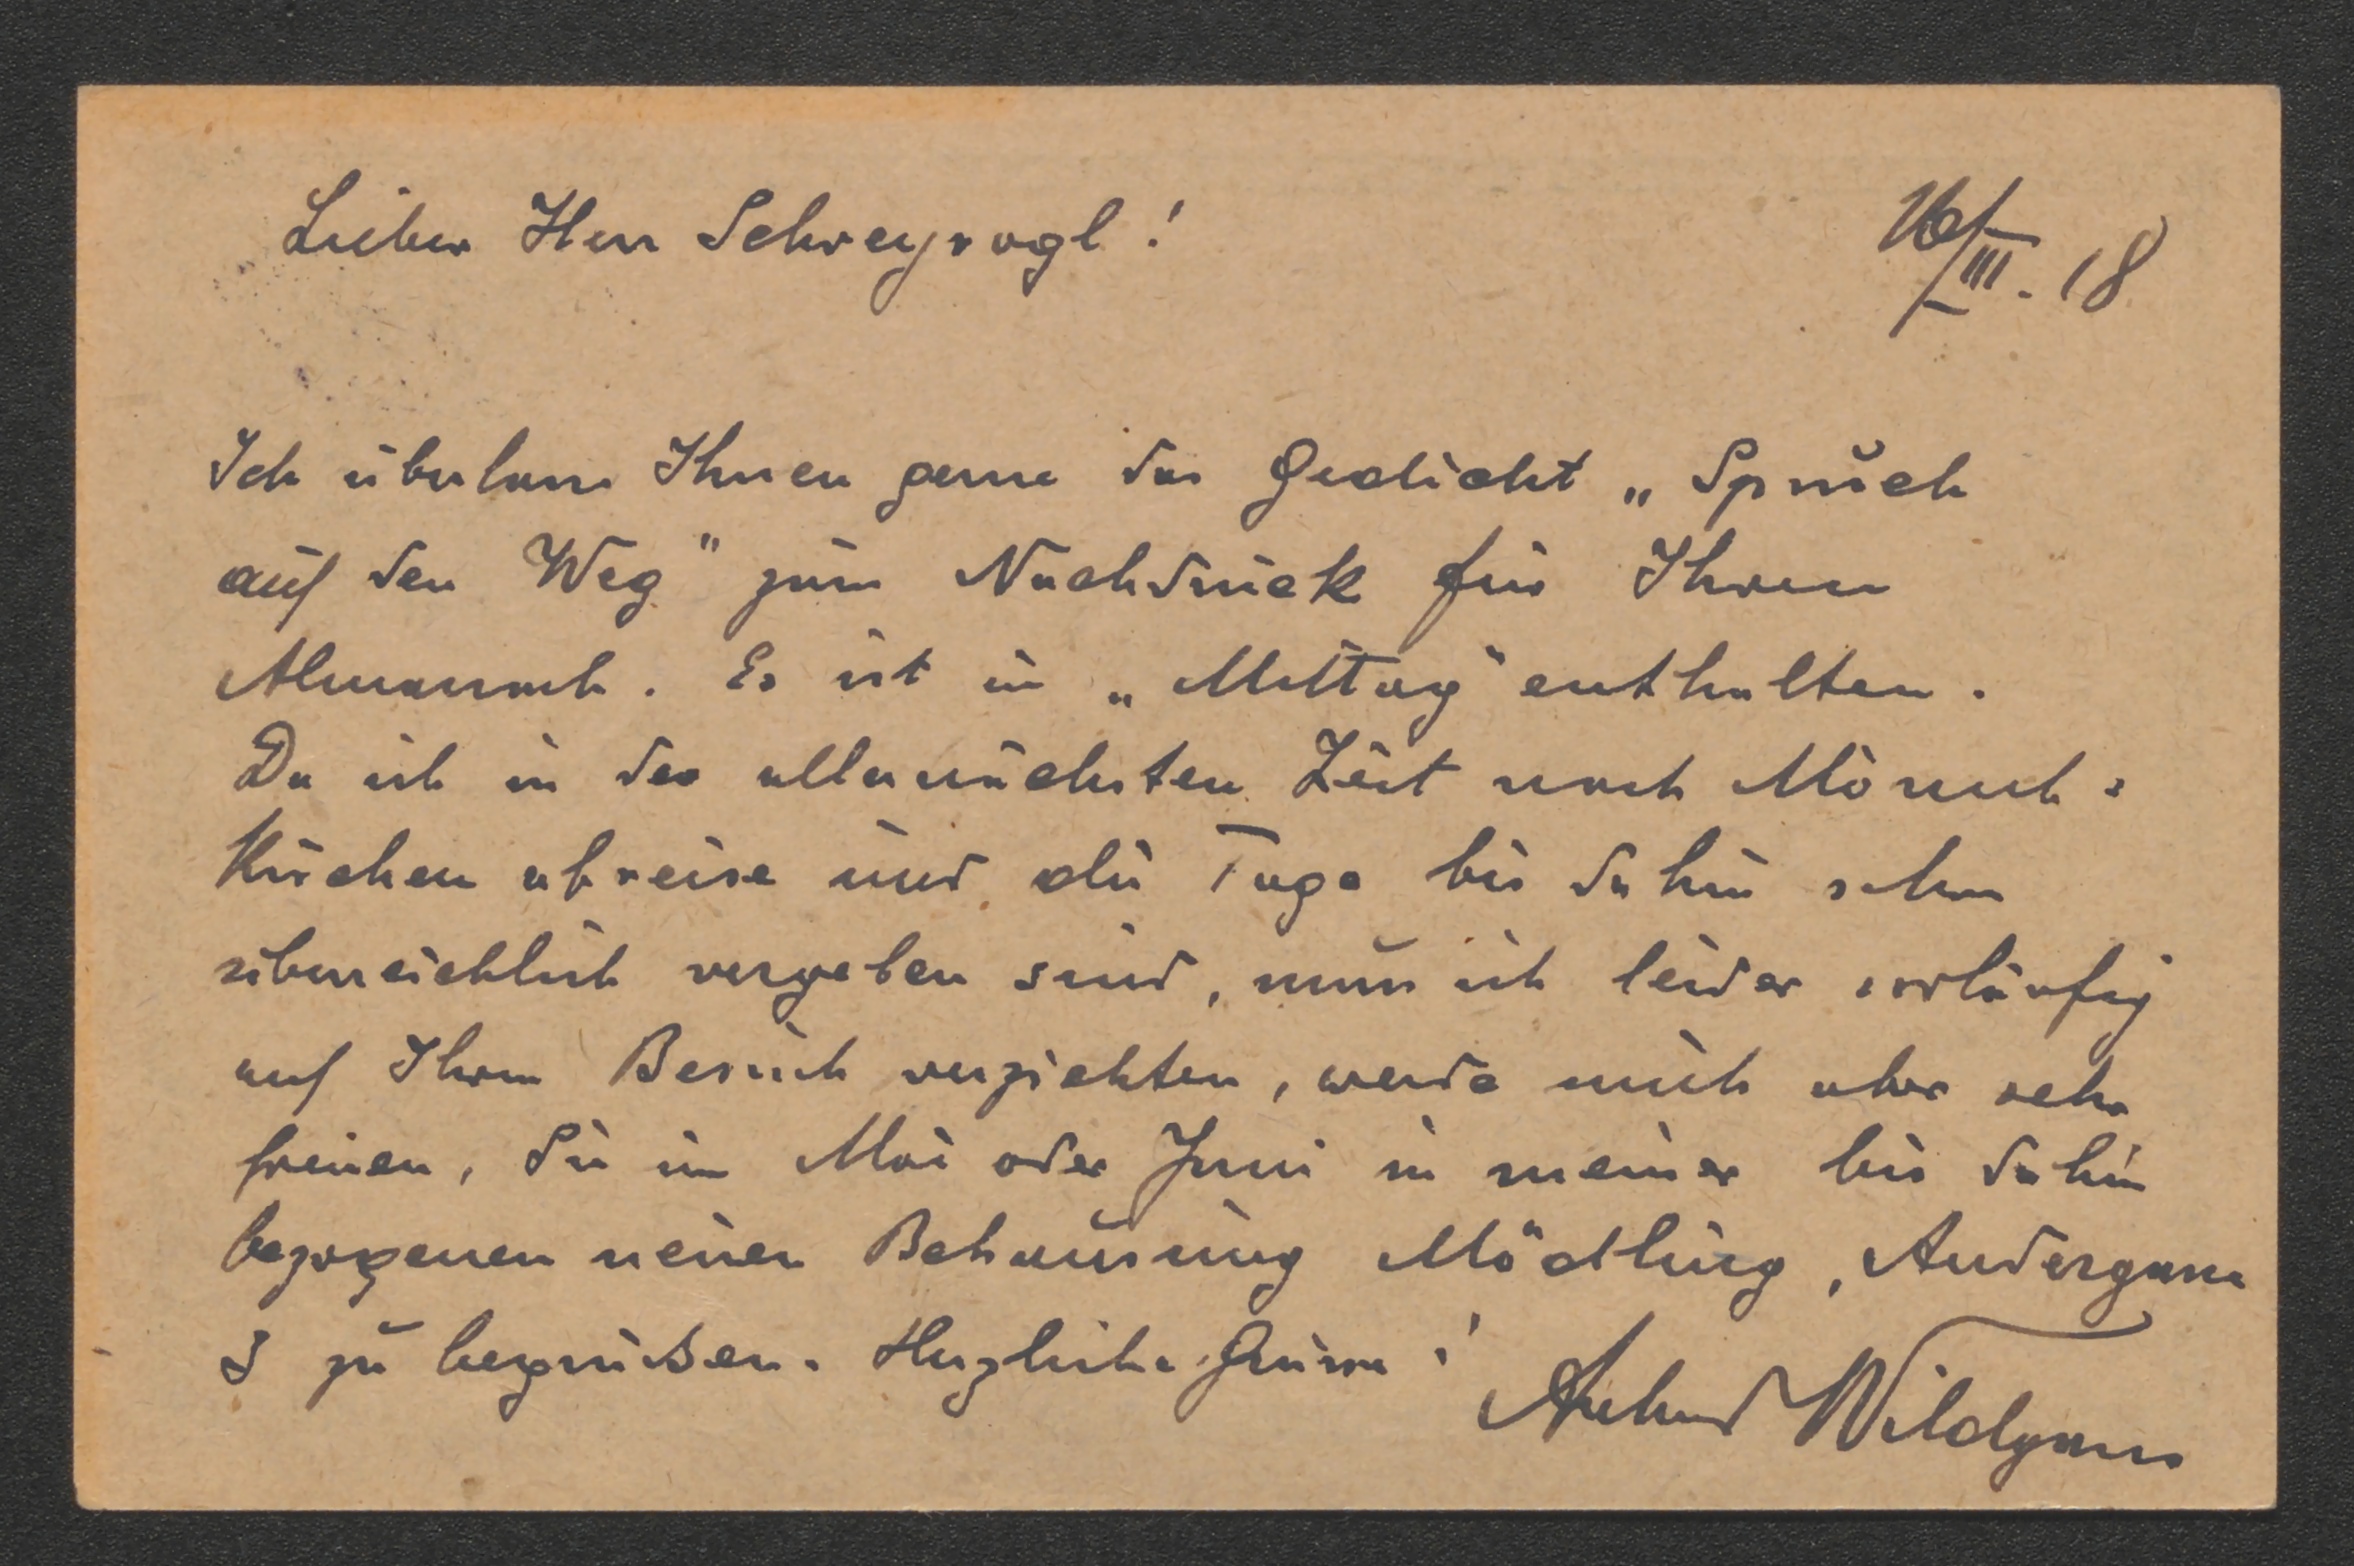 Lieber Herr Schreyvogl!
16/III. 18
Ich überlasse Ihnen gerne das Gedicht „Spruch
auf den Weg" zum Nachdruck für Ihren
Almanach. Es ist in „Mittag" enthalten.
Da ich in der allernächsten Zeit nach Mönich-
kirchen abreise und die Tage bis dahin schon
überreichlich vergeben sind, muss ich leider vorläufig
auf Ihren Besuch verzichten, werde mich aber sehr
freuen, Sie im Mai oder Juni in meiner bis dahin
bezogenen neuen Behausung Mödling, Andergasse
3 zu begrüßen. Herzliche Grüsse!
Anton Wildgans